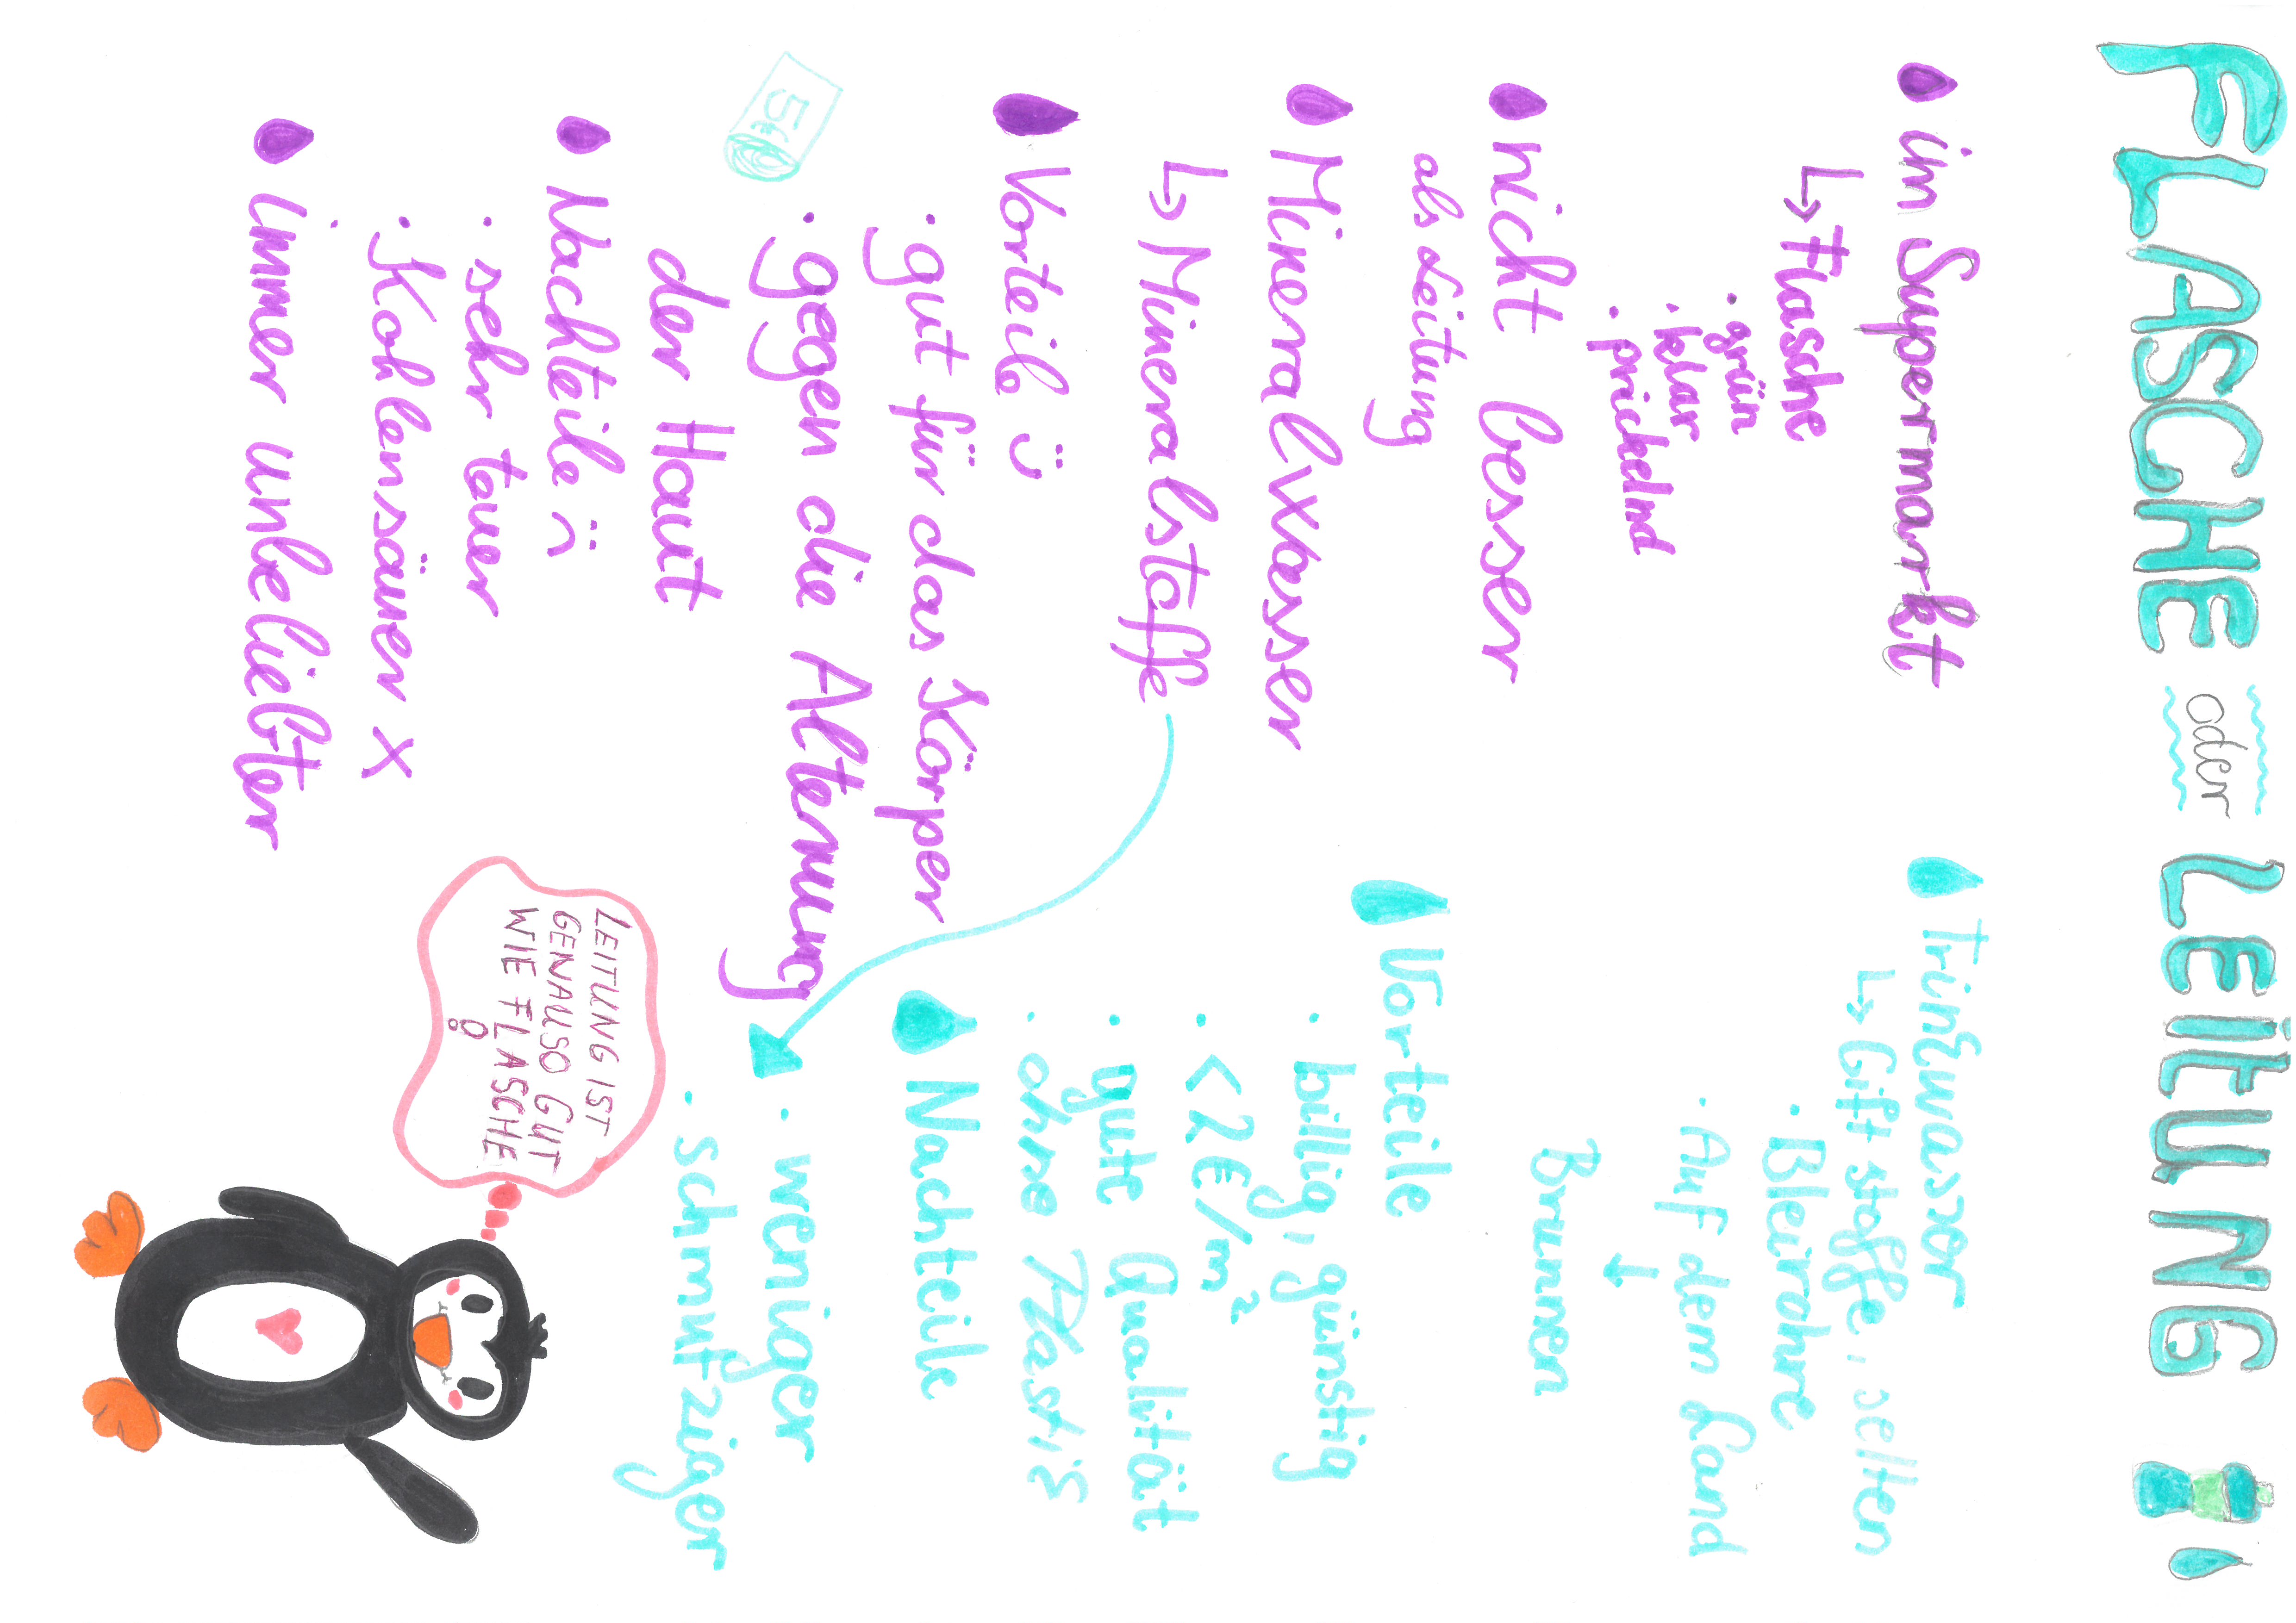 FLASCHE oder LEITUNG
im Supermarkt
↳ Flasche
· grün
· klar
· prickelnd
nicht besser
als Leitung
Mineralwasser
↳ Mineralstoffe
Vorteile :)
· gut für das Körper
· gegen die Alterung
der Haut
5€
Nachteile :(
· sehr tauer
· Kohlensäuer x
immer unbeliebter
Trinkwasser
↳ Giftstoffe, selten
· Bleirohre
· Auf dem Land
↓
Brunnen
Vorteile
· billig, günstig
· <2€/m²
· gute Qualität
· ohne Plastik
Nachteile
· weniger
· schmutziger
LEITUNG IST
GENAUSO GUT
WIE FLASCHE